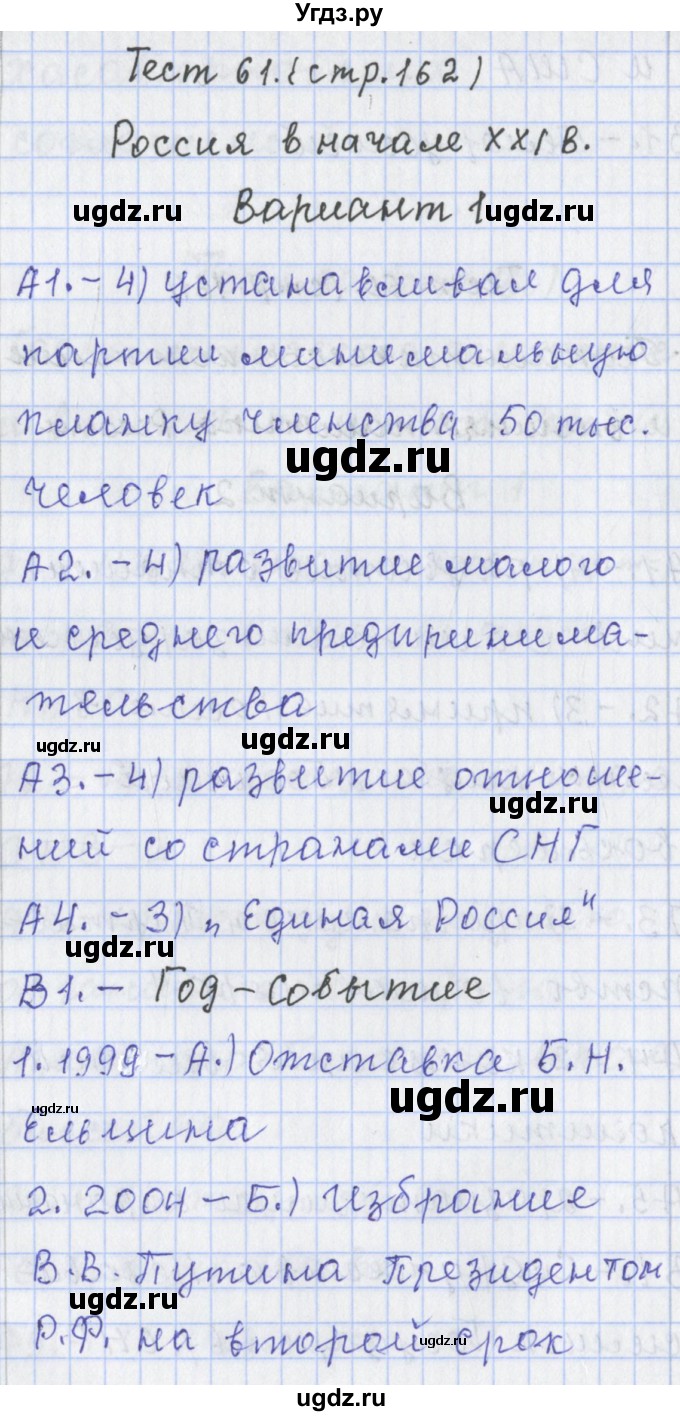 Угдз.ру
Тест 61. (стр. 162)
Россия в начале XXI в.
ugdz.ru Вариант 1 ugdz.ru
А1. - 4) устанавливал для
партии минимальную
планку членства - 50 тыс.
ugdz.ru
человек
А2. - 4) развитие малого
и среднего предпринима-
тельства
ugdz.ru ugdz.ru
А3. - 4) развитие отноше-
ugdz.ru
ний со странами СНГ
А4. - 3) „Единая Россия"
ugdz.ru
В1. - Год - Событие
1. 1999 - А.) Отставка Б.Н.
ugdz.ru ugdz.ru
Ельцина
2. 2004 - Б.) Избрание
В.В. Путина Президентом
ugdz.ru
Р.Ф. на второй срок
ugdz.ru
ugdz.ru